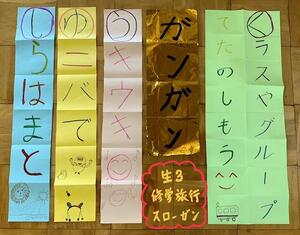 しらはまと
ゆニバで
うキウキ
ガンガン
くラスやグループ
でたのしもう^^
生3
修学旅行
スローガン